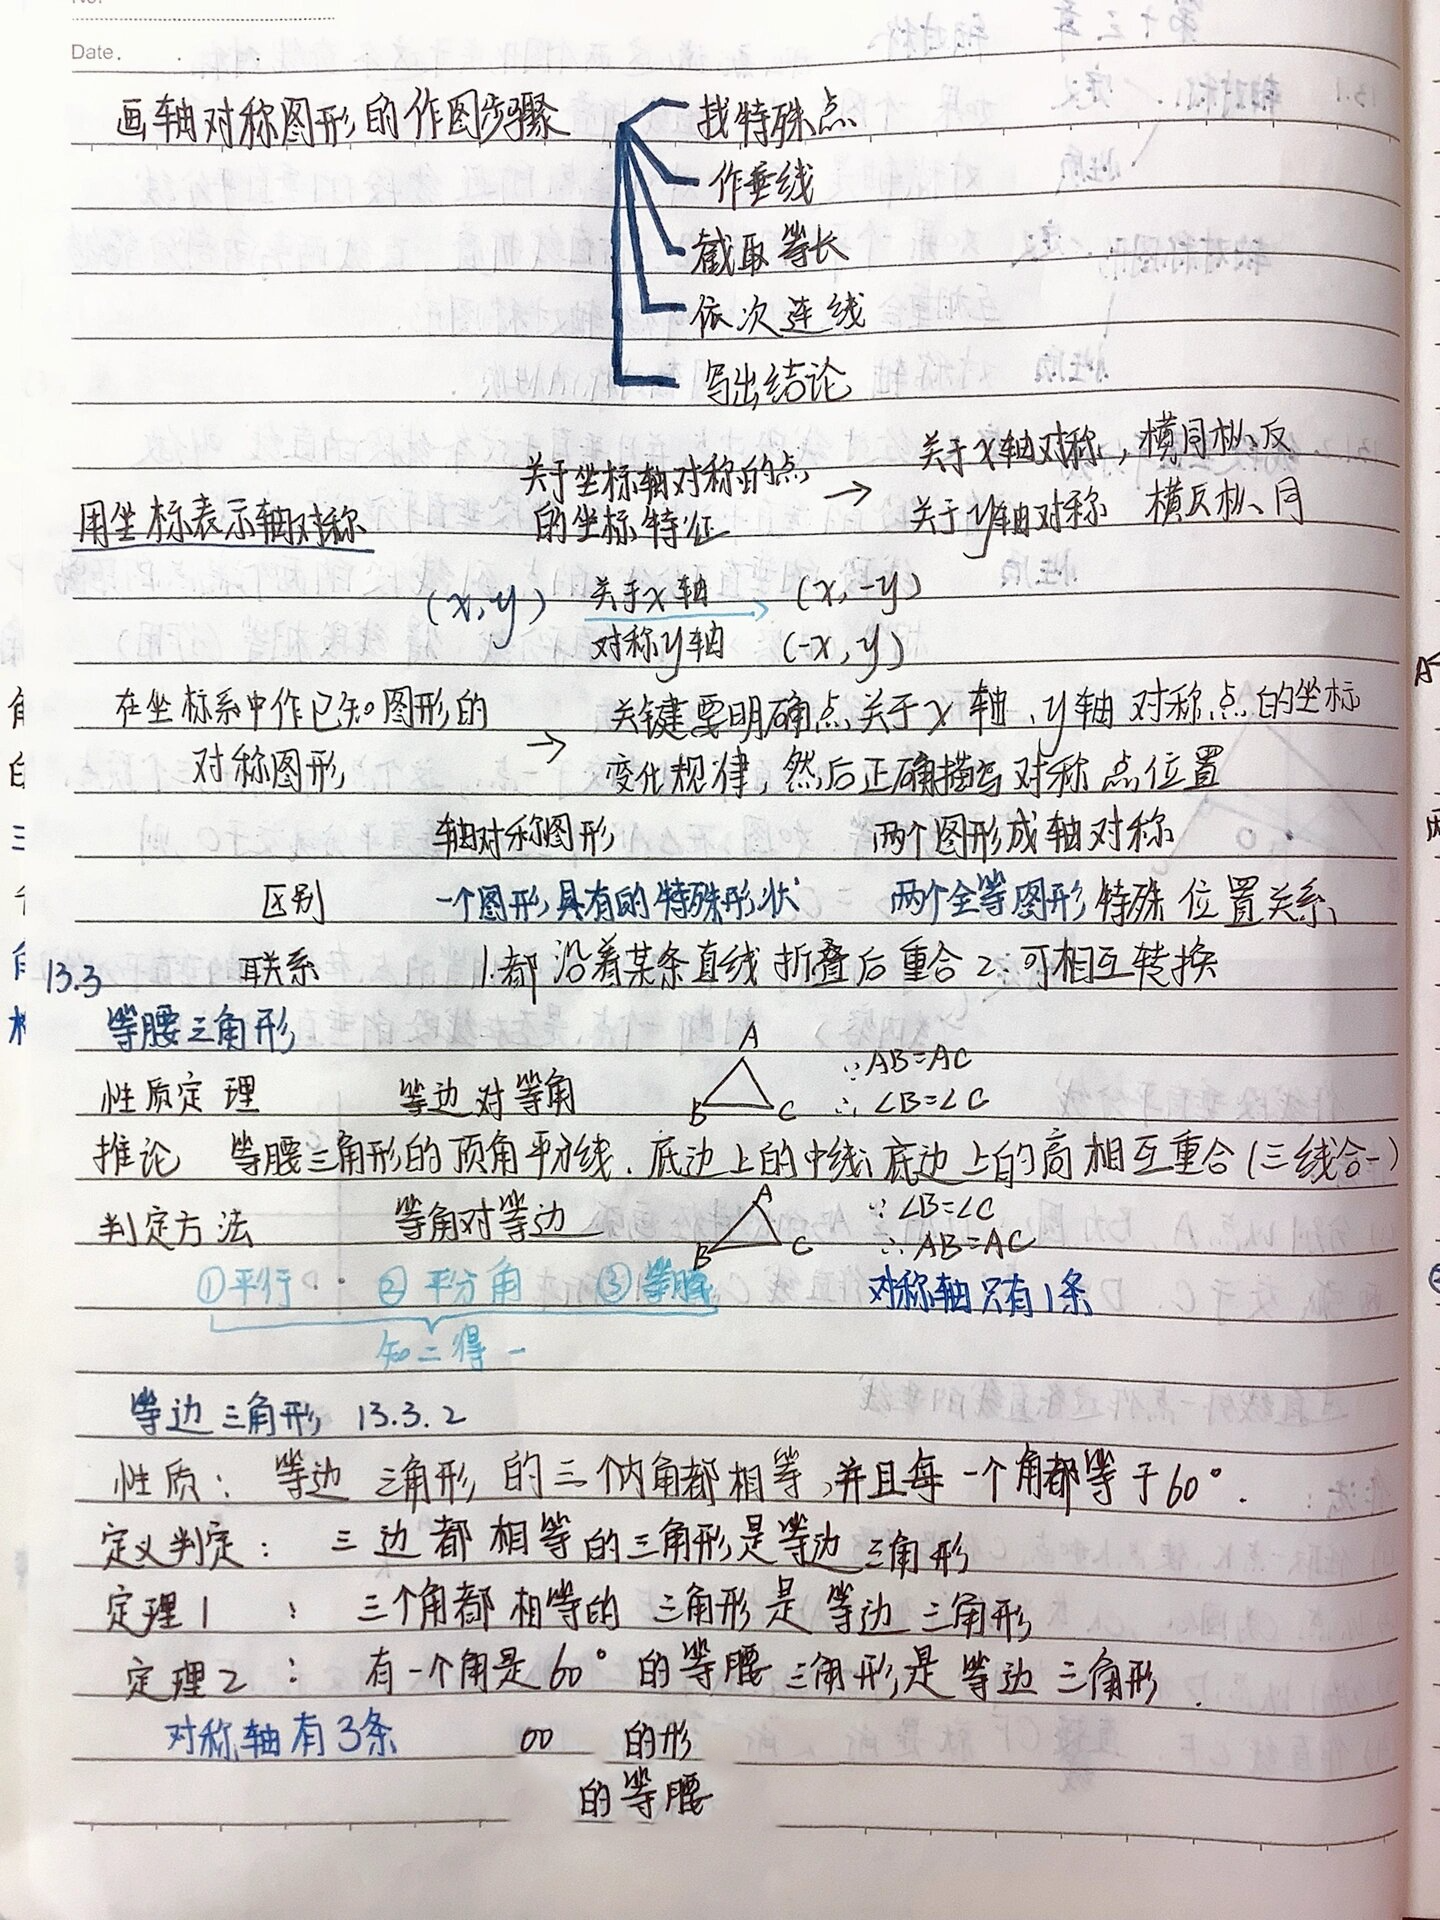 No.
Date.
画轴对称图形的作图步骤
找特殊点
作垂线
截取等长
依次连线
写出结论
用坐标表示轴对称
关于坐标轴对称的点
的坐标特征
→
关于x轴对称，横同纵反
关于y轴对称 横反纵同
(x,y) 关于x轴 (x,-y)
对称y轴 (-x,y)
在坐标系中作已知图形的
对称图形
→
关键要明确点关于x轴、y轴对称点的坐标
变化规律，然后正确描写对称点位置
轴对称图形 两个图形成轴对称
区别 一个图形具有的特殊形状 两个全等图形特殊位置关系
联系 1.都沿着某条直线折叠后重合 2.可相互转换
13.3
等腰三角形
性质定理 等边对等角 A B C ∵AB=AC
∴∠B=∠C
推论 等腰三角形的顶角平分线、底边上的中线、底边上的高相互重合(三线合一)
判定方法 等角对等边 A B C ∵∠B=∠C
∴AB=AC
①平行 ②平分角 ③等腰 对称轴只有1条
知二得一
等边三角形 13.3.2
性质：等边三角形的三个内角都相等，并且每一个角都等于60°.
定义判定：三边都相等的三角形是等边三角形
定理1：三个角都相等的三角形是等边三角形
定理2：有一个角是60°的等腰三角形是等边三角形.
对称轴有3条 00 的形
的等腰